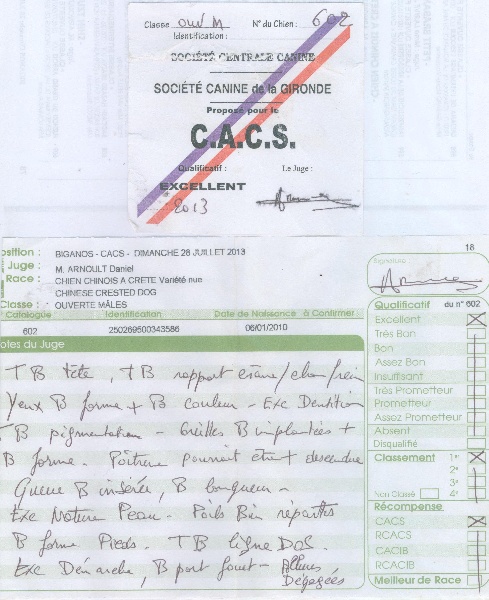 Classe OUV M N° du Chien : 602
Identification :
SOCIÉTÉ CENTRALE CANINE
SOCIÉTÉ CANINE de la GIRONDE
Proposé pour le
C.A.C.S.
Qualificatif : Le Juge :
EXCELLENT
2013
18
osition : BIGANOS - CACS - DIMANCHE 28 JUILLET 2013
Juge : M. ARNOULT Daniel
Race : CHIEN CHINOIS A CRETE Variété nue
CHINESE CRESTED DOG
Classe : OUVERTE MÂLES
Catalogue Identification Date de Naissance à Confirmer
602 250269500343586 06/01/2010
otes du Juge
TB tête, TB rapport crâne/chanfrein
Yeux B forme + B couleur - Exc Dentition
TB pigmentation - oreilles B implantées +
B forme. Poitrine pourrait être + descendue
Queue B insérée, B longueur -
Exc Texture Peau. Poils Bien répartis
B forme Pieds. TB ligne DOS.
Exc Démarche, B port fouet - Allures
Dégagées
Signature
Qualificatif du n° 602
Excellent
Très Bon
Bon
Assez Bon
Insuffisant
Très Prometteur
Prometteur
Assez Prometteur
Absent
Disqualifié
Classement 1er
2e
3e
Non Classé 4e
Récompense
CACS
RCACS
CACIB
RCACIB
Meilleur de Race